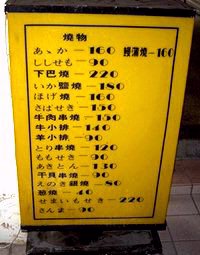 燒物
あゝか—160 鰻蒲燒—160
ししせも—90
下巴燒—220
いか鹽燒—180
ほげ燒—160
さはせき—150
牛肉串燒—150
牛小排—140
羊小排—90
とり串燒—120
ももせき—90
あきとん—130
干貝串燒—90
えのき銀燒—80
蔥燒—40
せまいもせき—220
さんま—90